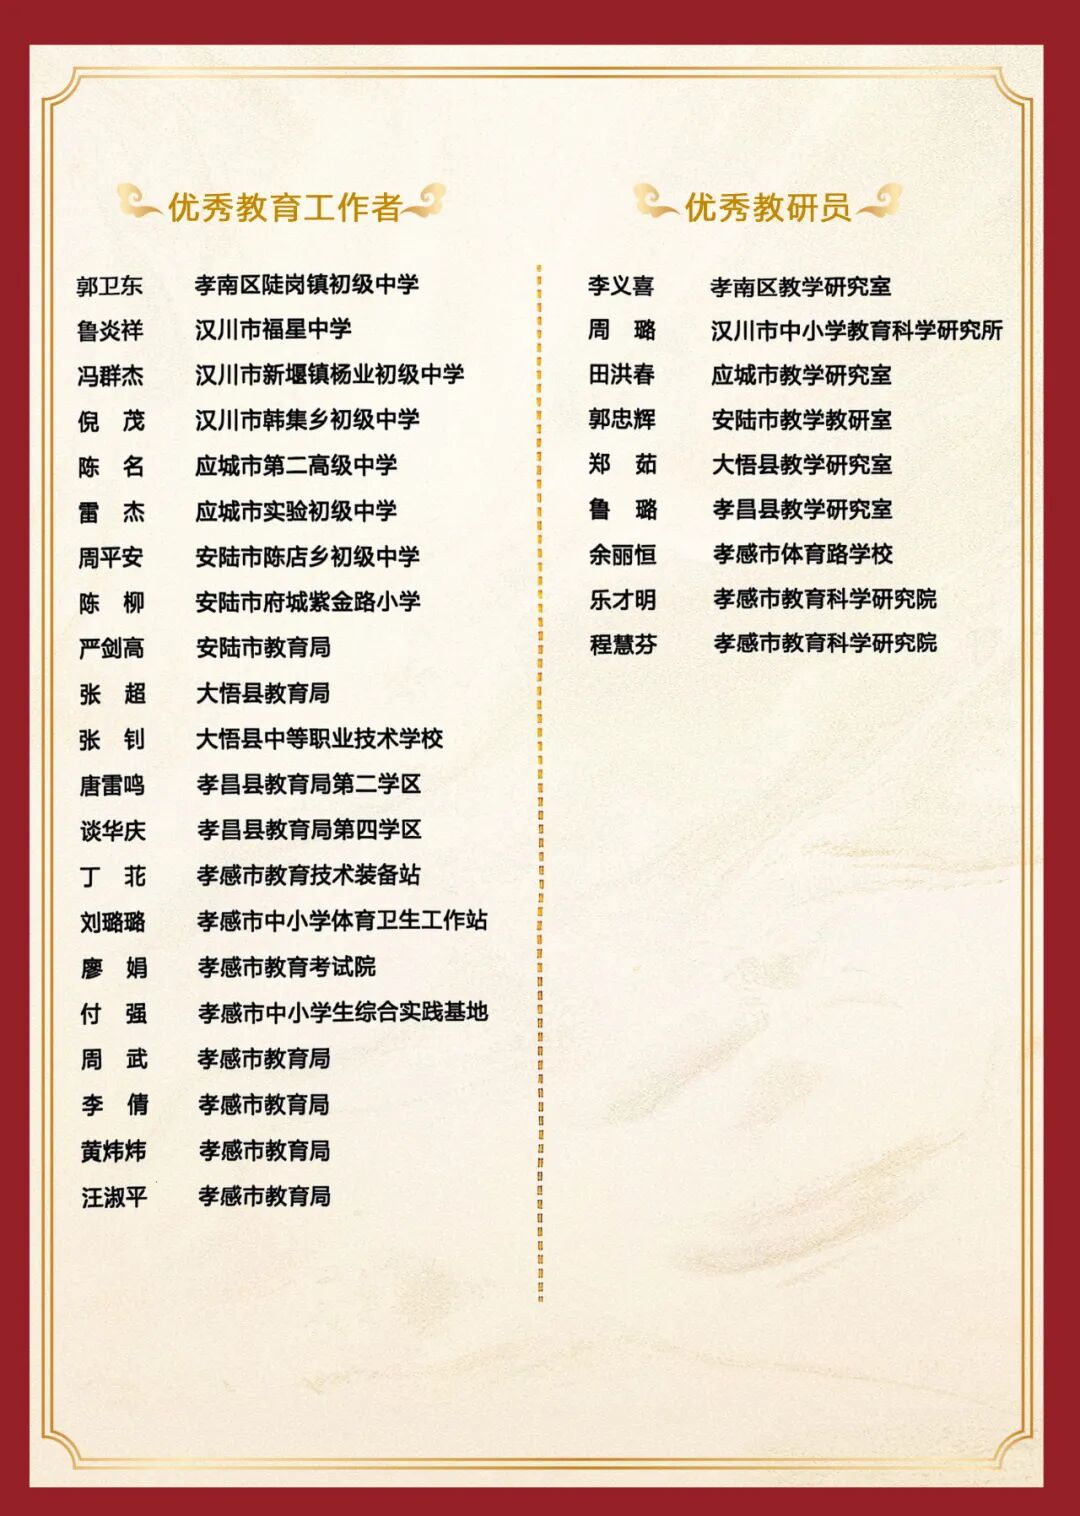 优秀教育工作者
郭卫东 孝南区陡岗镇初级中学
鲁炎祥 汉川市福星中学
冯群杰 汉川市新堰镇杨业初级中学
倪 茂 汉川市韩集乡初级中学
陈 名 应城市第二高级中学
雷 杰 应城市实验初级中学
周平安 安陆市陈店乡初级中学
陈 柳 安陆市府城紫金路小学
严剑高 安陆市教育局
张 超 大悟县教育局
张 钊 大悟县中等职业技术学校
唐雷鸣 孝昌县教育局第二学区
谈华庆 孝昌县教育局第四学区
丁 苝 孝感市教育技术装备站
刘璐璐 孝感市中小学体育卫生工作站
廖 娟 孝感市教育考试院
付 强 孝感市中小学生综合实践基地
周 武 孝感市教育局
李 倩 孝感市教育局
黄炜炜 孝感市教育局
汪淑平 孝感市教育局
优秀教研员
李义喜 孝南区教学研究室
周 璐 汉川市中小学教育科学研究所
田洪春 应城市教学研究室
郭忠辉 安陆市教学教研室
郑 茹 大悟县教学研究室
鲁 璐 孝昌县教学研究室
余丽恒 孝感市体育路学校
乐才明 孝感市教育科学研究院
程慧芬 孝感市教育科学研究院